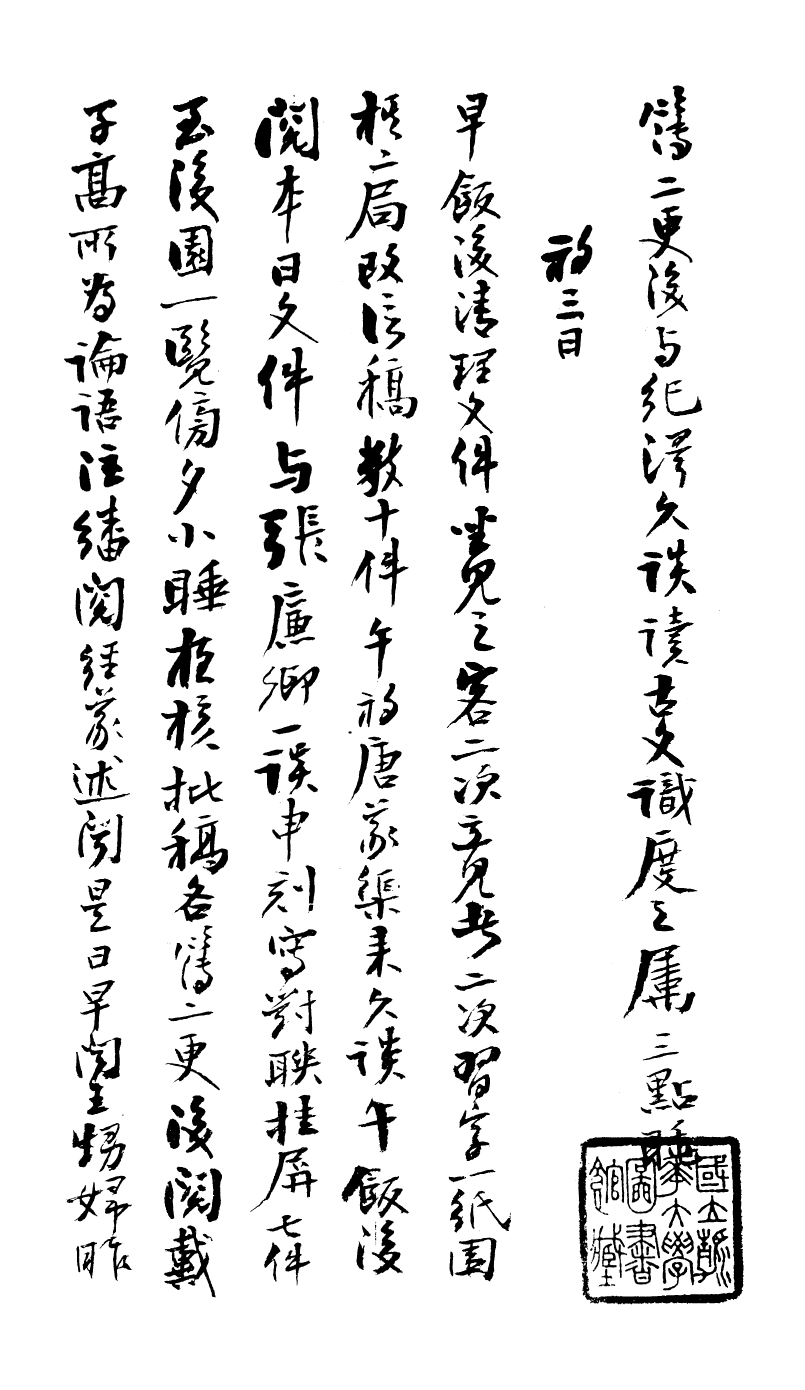 簿二更後与紀澤久談讀古文識度之属三點睡
初三日
早飯後清理文件坐見之客二次立見者二次習字一紙围
棋二局改信稿數十件午初唐義渠来久談午飯後
閱本日文件与張廉卿一談申刻寫對聯挂屏七件
至後園一覽傍夕小睡夜核批稿各簿二更後閱戴
子高所為論語注繙閱經義述聞是日早聞王甥婦昨
國立清華大學圖書館藏